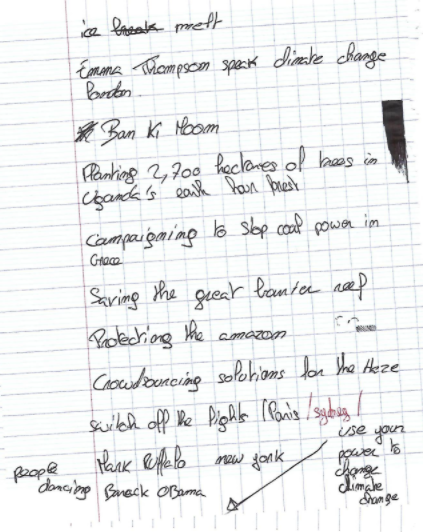 ice break melt
Emma Thompson speak climate change
London.
Ban Ki Moon
Planting 2,700 hectares of trees in
Uganda's
Campaigning to stop coal power in
Grece
Saving the great barrier reef
Protecting the amazon
Crowdsourcing solutions for the Haze
switch off the lights (Paris / sydney /
Mark Ruffalo new york
people
dancing
Barack OBama
use your
power to
change
climate
change